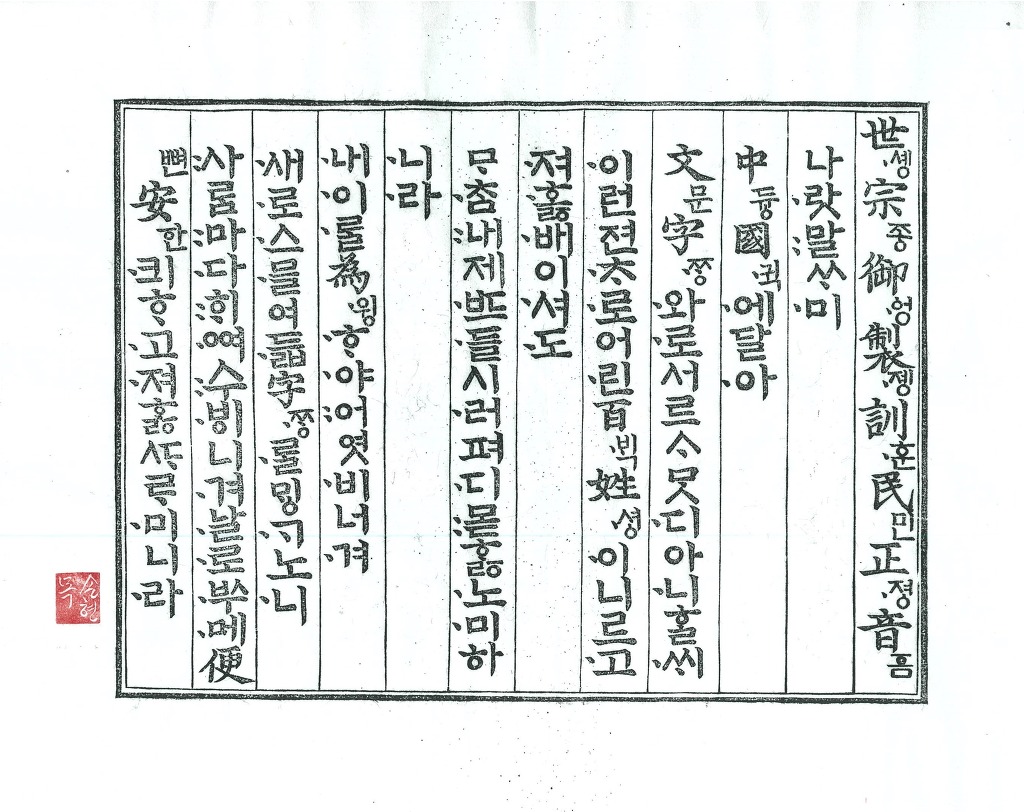 世·솅宗종御·엉製·졩訓·훈民민正·졍音흠
나·랏:말ᄊᆞ·미
中듕國·귁·에달·아
文문字·ᄍᆞᆼ·와·로서르ᄉᆞᄆᆞᆺ·디아·니ᄒᆞᆯ·ᄊᆡ
·이런젼·ᄎᆞ·로어·린百·ᄇᆡᆨ姓·셩·이니르·고
·져·호ᇙ·배이·셔·도
ᄆᆞ·ᄎᆞᆷ:내제·ᄠᅳ·들시·러펴·디:몯ᄒᆞᇙ·노·미하
니·라
·내·이·ᄅᆞᆯ為·윙·ᄒᆞ·야:어엿·비너·겨
·새·로·스·믈여·듧字·ᄍᆞᆼ·ᄅᆞᆯᄆᆡᇰ·ᄀᆞ노·니
:사ᄅᆞᆷ:마·다:ᄒᆡ·ᅇᅧ:수·ᄫᅵ니·겨·날·로·ᄡᅮ·메便
뼌安한·킈ᄒᆞ·고·져ᄒᆞᇙᄯᆞᄅᆞ·미니·라